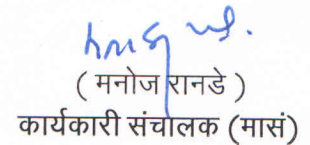 ( मनोज रानडे )
कार्यकारी संचालक (मासं)